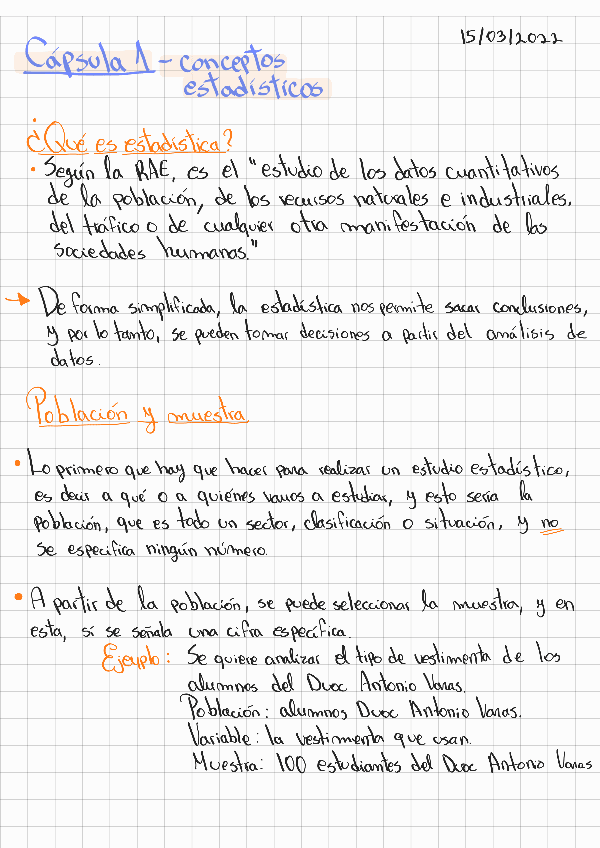 15/03/2022
Cápsula 1 - conceptos
estadísticos
¿Qué es estadística?
• Según la RAE, es el "estudio de los datos cuantitativos
de la población, de los recursos naturales e industriales,
del tráfico o de cualquier otra manifestación de las
sociedades humanas."
→ De forma simplificada, la estadística nos permite sacar conclusiones,
y por lo tanto, se pueden tomar decisiones a partir del análisis de
datos.
Población y muestra
• Lo primero que hay que hacer para realizar un estudio estadístico,
es decir a qué o a quiénes vamos a estudiar, y esto sería la
población, que es todo un sector, clasificación o situación, y no
se especifica ningún número.
• A partir de la población, se puede seleccionar la muestra, y en
esta, sí se señala una cifra específica.
Ejemplo: Se quiere analizar el tipo de vestimenta de los
alumnos del Duoc Antonio Varas.
Población: alumnos Duoc Antonio Varas.
Variable: la vestimenta que usan.
Muestra: 100 estudiantes del Duoc Antonio Varas